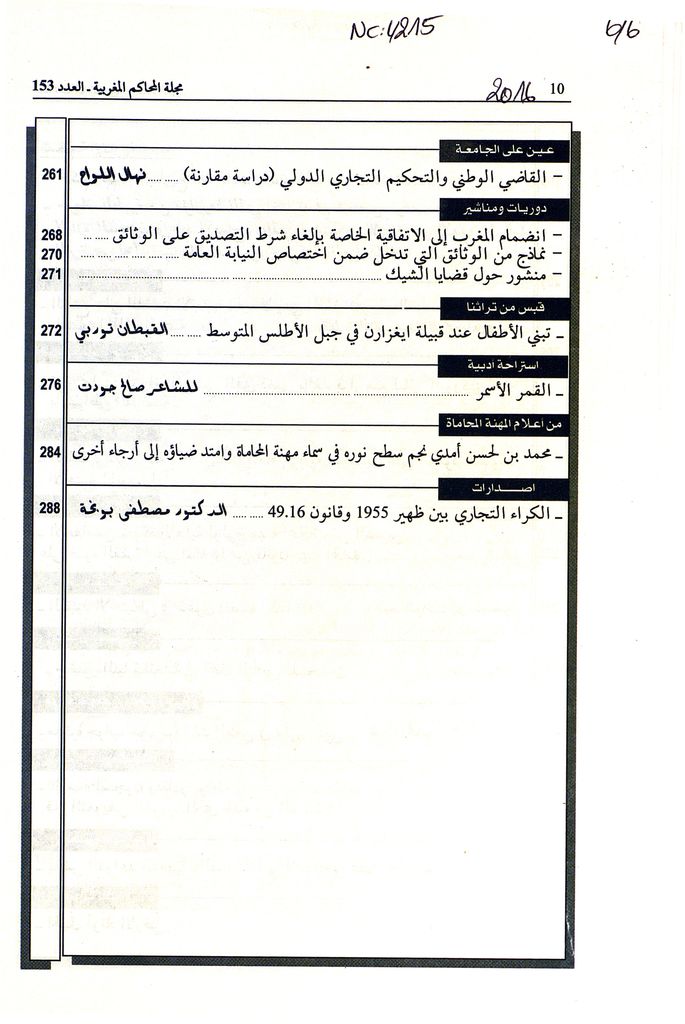 NC:4215 6/6
10 2016 مجلة المحاكم المغربية ـ العدد 153
عين على الجامعة
– القاضي الوطني والتحكيم التجاري الدولي (دراسة مقارنة) ........ نهال اللواح 261
دوريات ومناشير
– انضمام المغرب إلى الاتفاقية الخاصة بإلغاء شرط التصديق على الوثائق ..... 268
– نماذج من الوثائق التي تدخل ضمن اختصاص النيابة العامة ..... 270
– منشور حول قضايا الشيك ..... 271
قبس من تراثنا
ـ تبني الأطفال عند قبيلة ايغزارن في جبل الأطلس المتوسط ........ القبطان توربي 272
استراحة أدبية
ـ القمر الأسمر ..... للشاعر صالح جودت 276
من أعلام المهنة المحاماة
ـ محمد بن لحسن أمدي نجم سطح نوره في سماء مهنة المحاماة وامتد ضياؤه إلى أرجاء أخرى 284
اصـــدارات
ـ الكراء التجاري بين ظهير 1955 وقانون 49.16 ........ الدكتور مصطفى بونجة 288